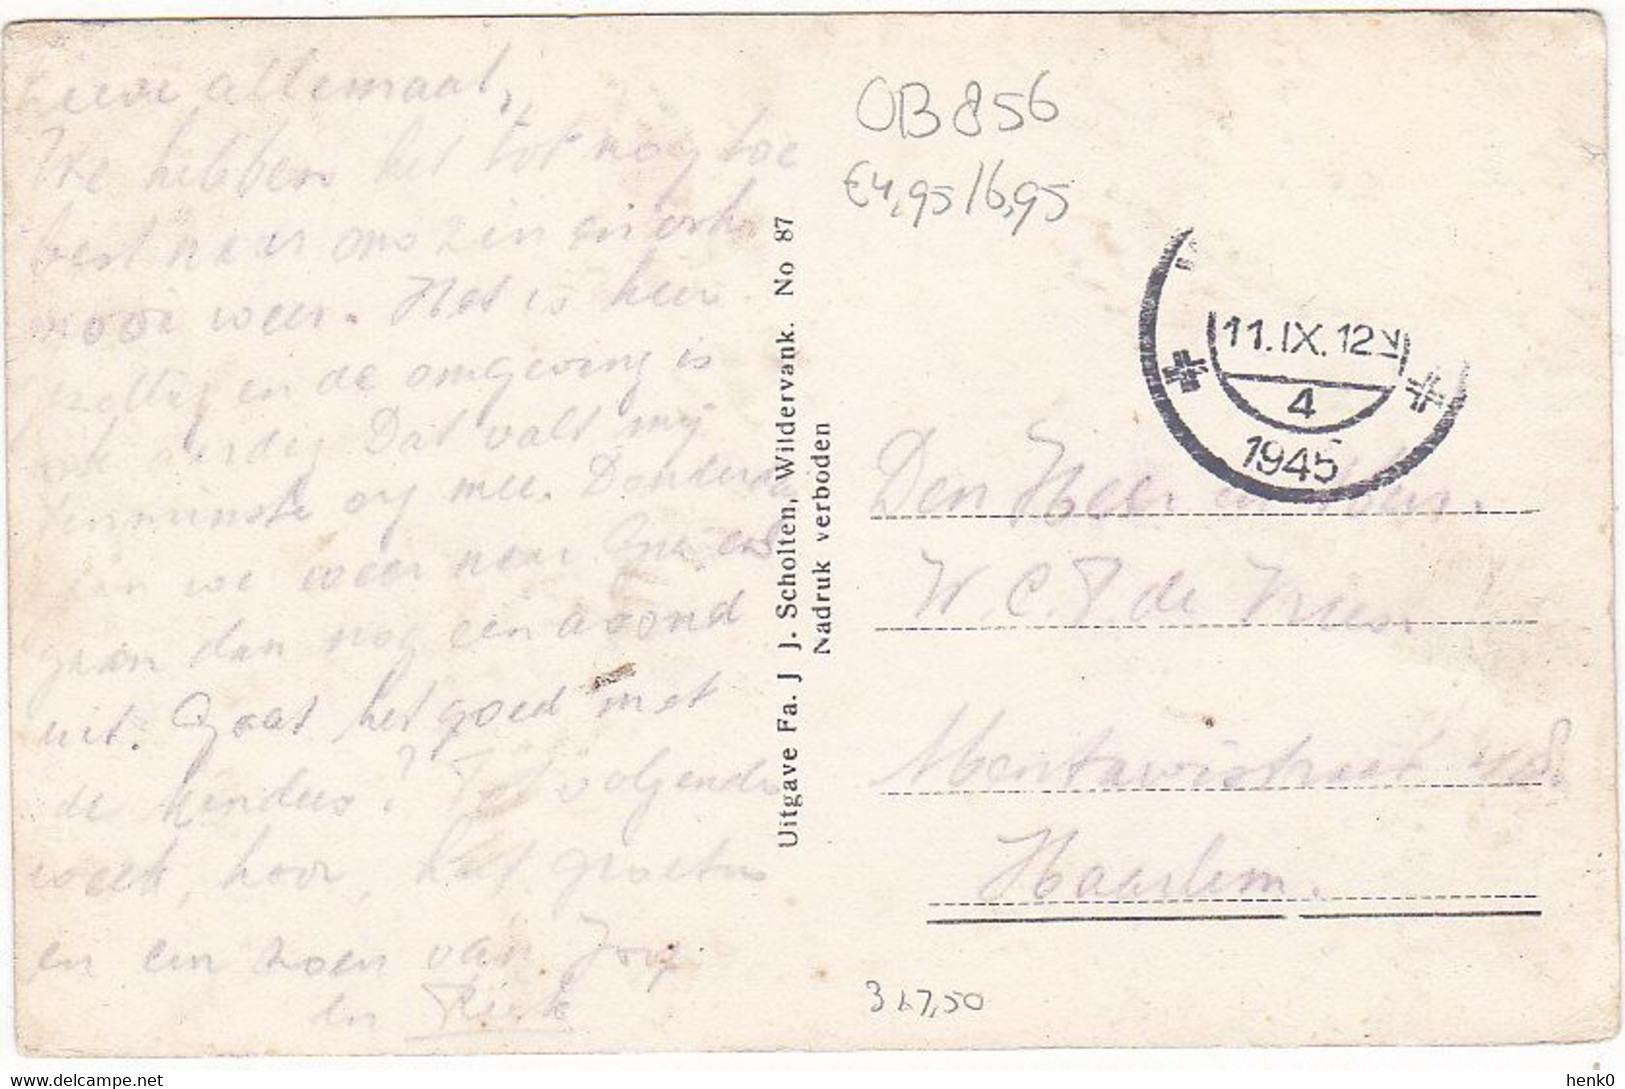 Lieve allemaal,
We hebben het tot nog toe
best naar ons zin en ook
mooi weer. Het is hier
en de omgeving is
ook aardig Dat valt mij
tenminste erg mee. Donderdag
we weer naar
gaan dan nog een avond
uit. Gaat het goed met
de kinders? Tot volgende
week, hoor, hart. groeten
en een zoen van Joop
en Riek
Uitgave Fa. J J. Scholten, Wildervank. No 87
Nadruk verboden
OB 856
€4,95/6,95
11.IX.12V
4
1945
Den Heer en Mevr.
W.C.P. de Vries.
Mentawistraat
Haarlem.
3 L7,50
delcampe.net
henk0